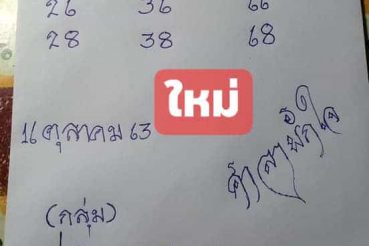 26 36 66
28 38 68
ใหม่
16 ตุลาคม 63
(กลุ่ม)